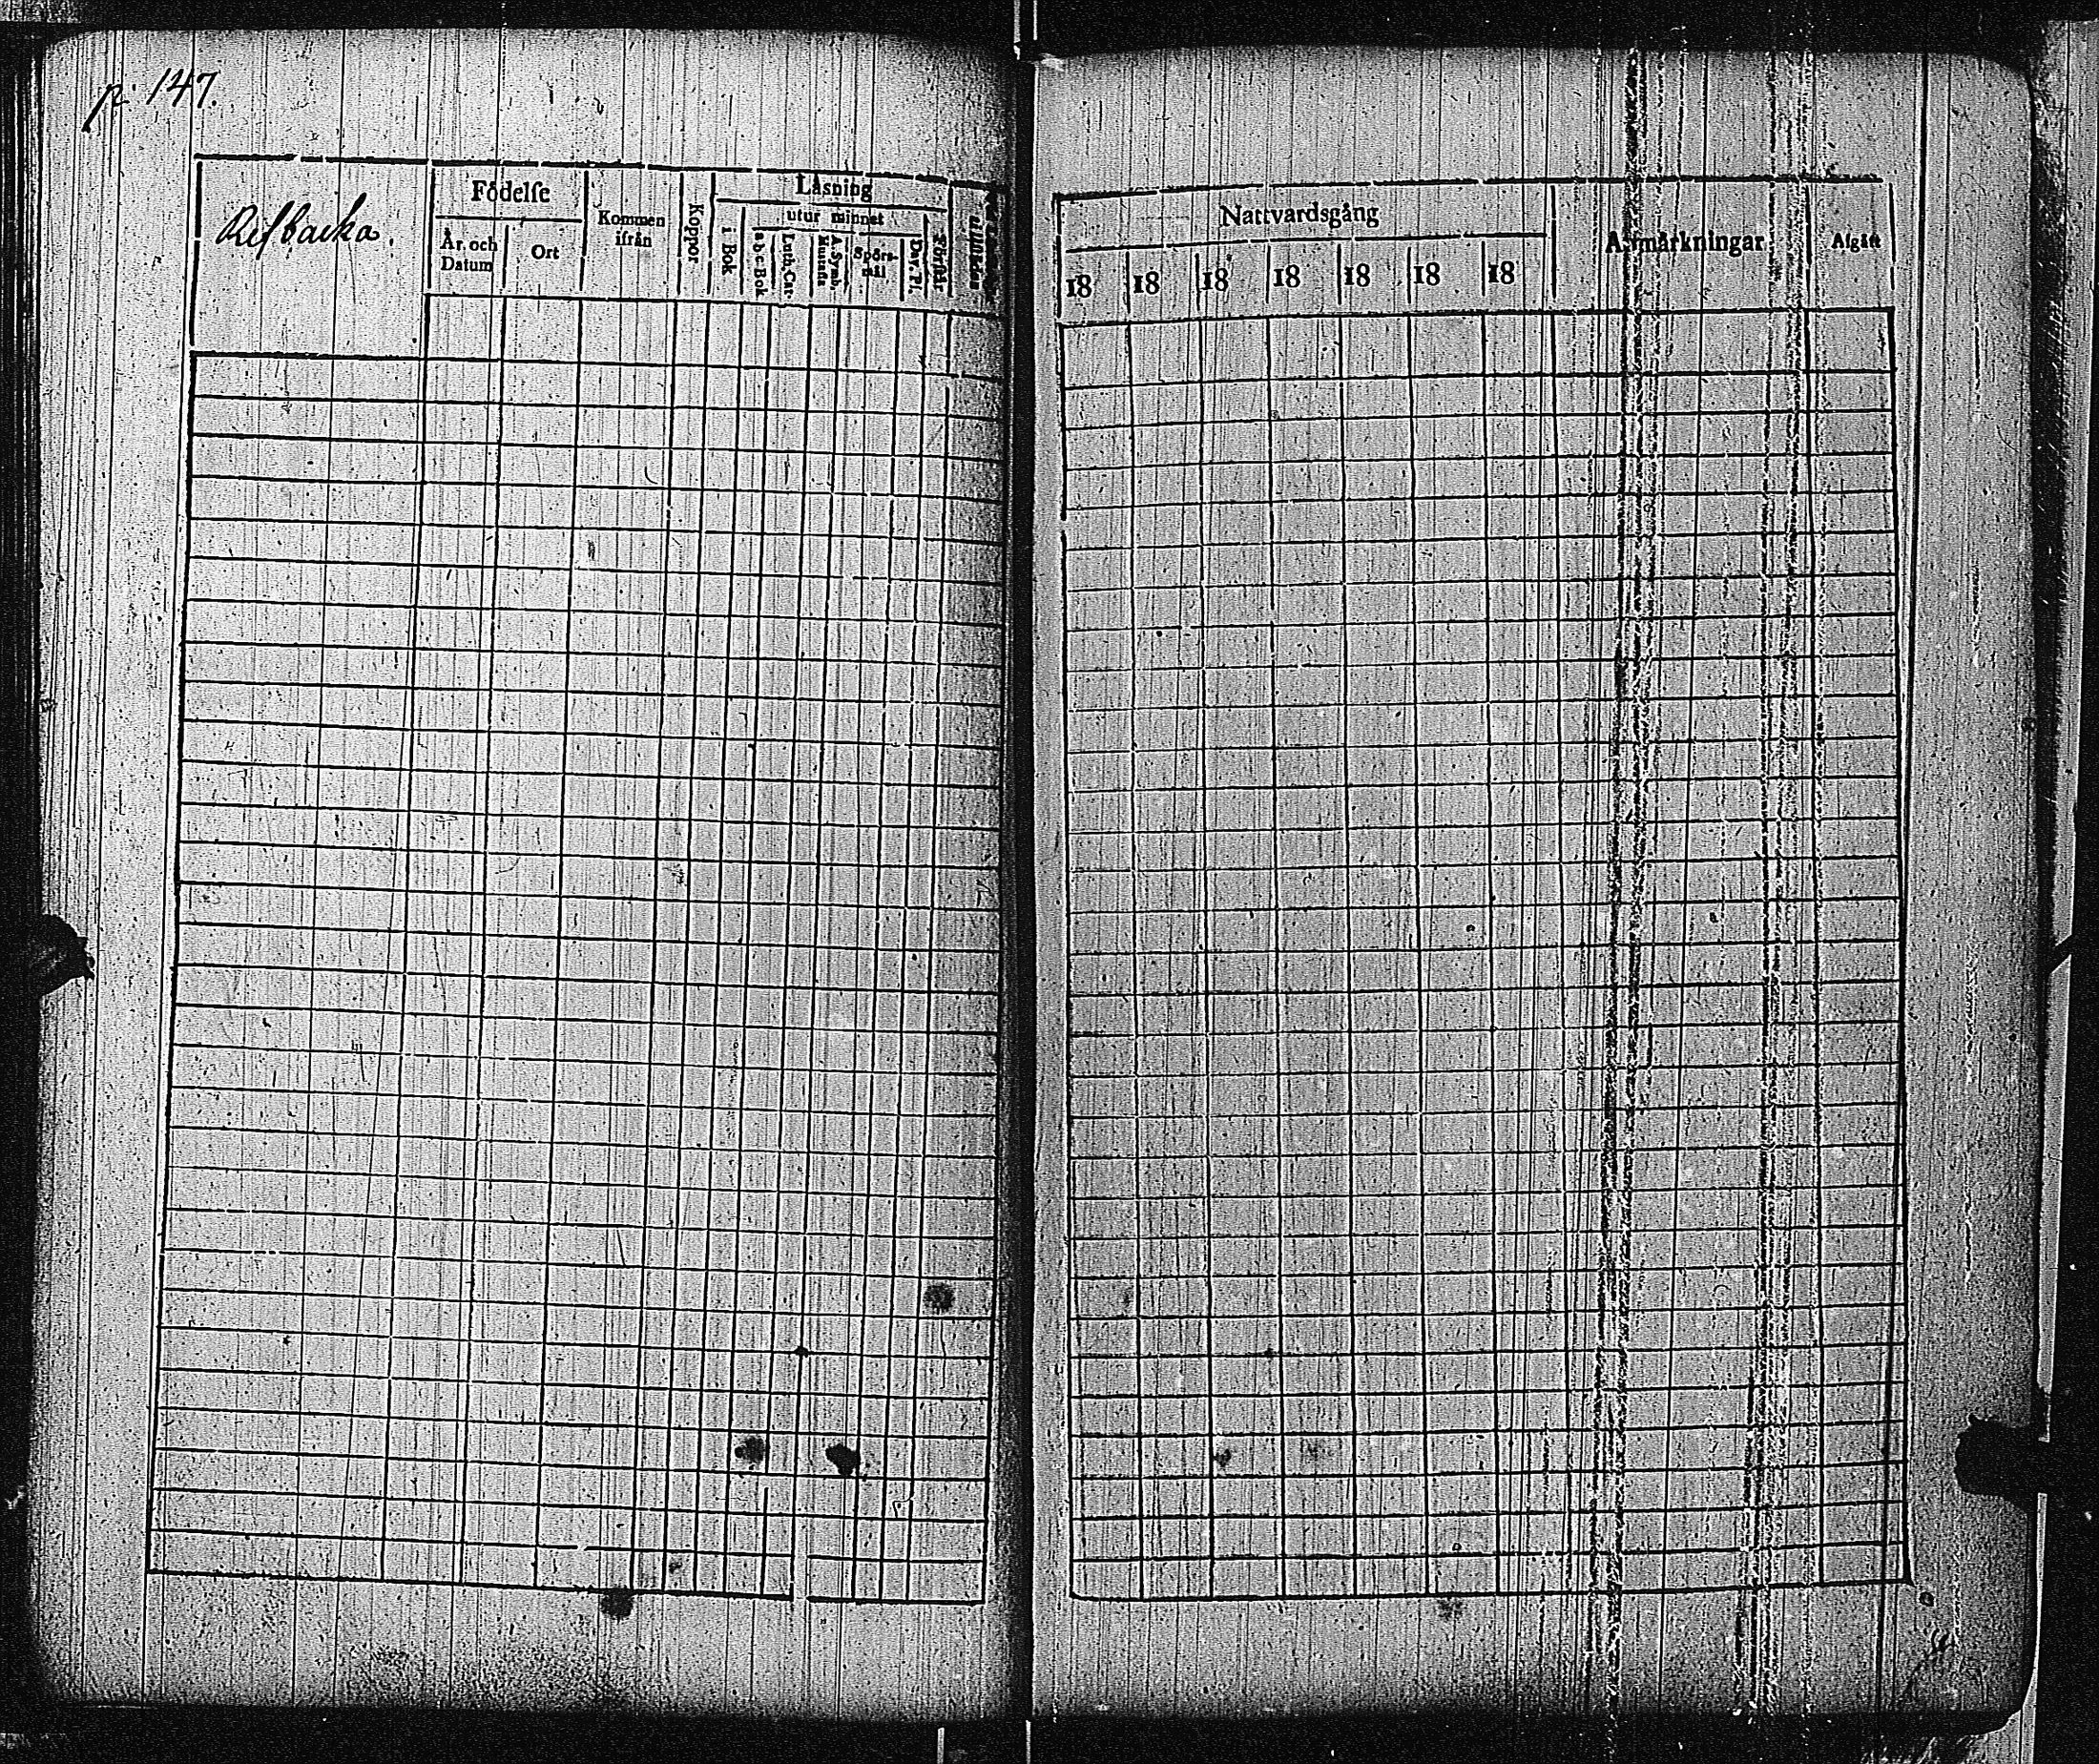 p. 147.
Refbacka.
Födelse
År och Datum
Ort
Kommen ifrån
Koppor
Läsning
i Bok
utur minnet
a b c Bok
Luth. Cat.
A. Symb.
Hustafla
Spörsmål
Dav. Ps.
Förstår
Nattvardsgång
18 18 18 18 18 18 18
Anmärkningar
Afgått